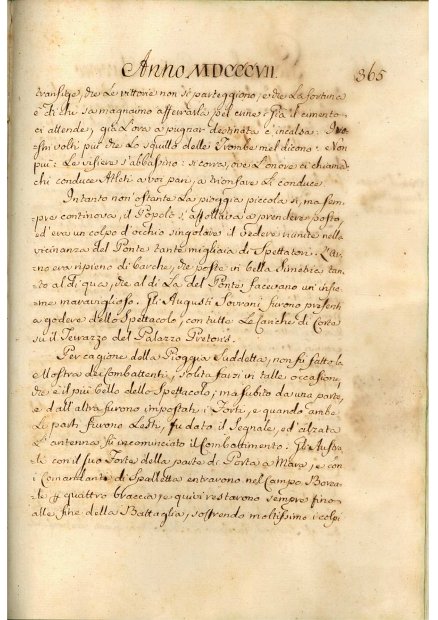 Anno MDCCCVII.
365
transige, che Le vittorie non si parteggiono, e che La fortuna
è di chi sa magnaimo afferrarla pel crine. Già il cimento
ci attende, già L'ora a pugnar destinata è incalsa. I vo-
stri volti più che Lo squillo delle Trombe mel dicono. Non
più: Le visiere s'abbasino: si corra, ove L'onore ci chiama
chi conduce Atleti a voi pari, a trionfare Li conduce
Intanto non ostante La pioggia piccola sì, ma sem-
pre continova, il Popolo s'affollava a prendere posto,
ed era un colpo d'occhio singolare il vedere riunite nella
vicinanza del Ponte tante migliaia di Spettatori. L'Ar-
no era ripieno di barche, che poste in bella Simetria tan-
to al di qua, che al di La del Ponte facevano un'insie-
me maraviglioso. Gli Augusti Sovrani furono presenti
a godere dello Spettacolo, con tutte Le Cariche di Corte
su il Terrazzo del Palazzo Pretorio.
Per cagione della Pioggia Suddetta, non fù fatto la
Mostra dei Combattenti, solita farsi in talle occasioni,
che è il più bello dello Spettacolo; ma subito da una parte,
e dall'altra furono impostati i Forte, e quando ambe
Le parti furono Leste, fu dato il Segnale, ed alzata
L'antenna fù incominciato il Combattimento. Gli Austra-
le con il suo Forte della parte di Porta a Mare, e con
i Comandanti di Spalletta entravono nel Campo Borea-
le quattro braccia, e quivi restarono sempre fino
alle fine della Battaglia, soffrendo moltissimo i colpi